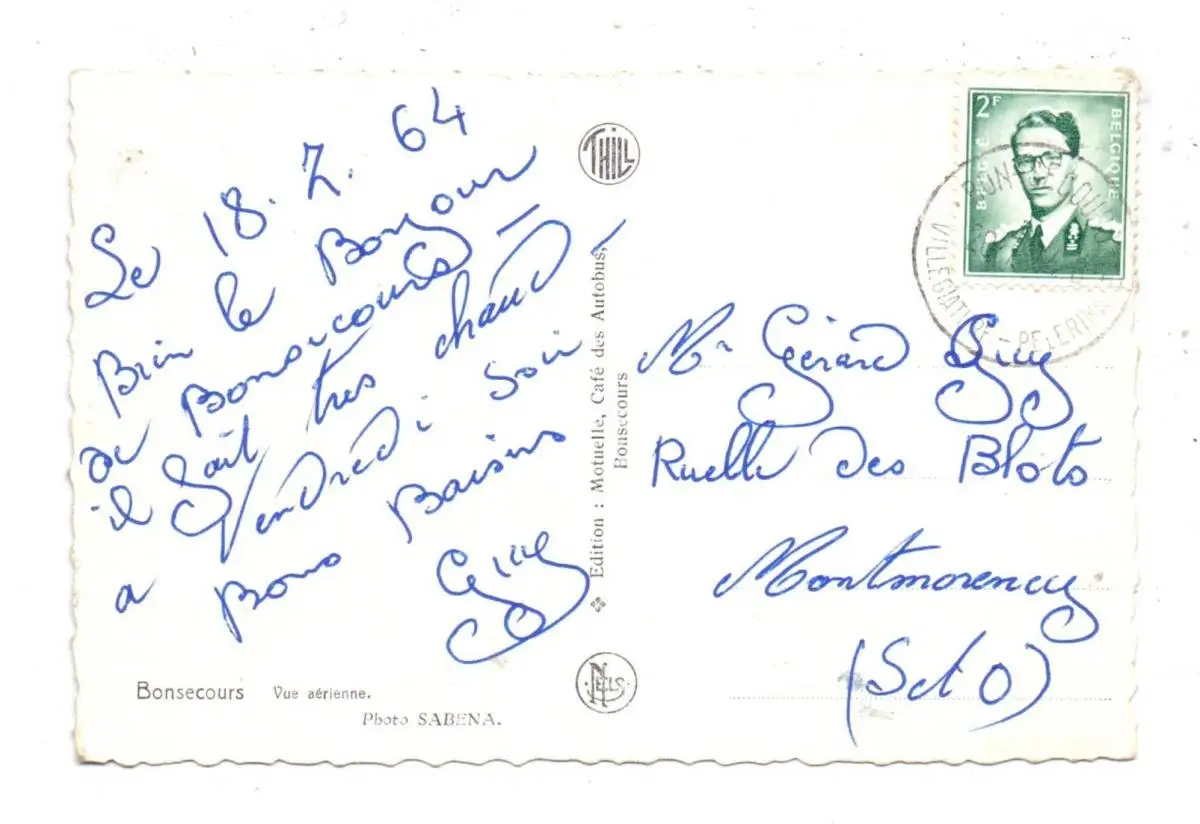 Le 18.7.64
Bien le Bonjour
de Bonsecours -
il fait tres chaud -
a Vendredi soir
Bons Baisers
Guy
Bonsecours Vue aérienne.
Photo SABENA.
THILL
Edition : Motuelle, Café des Autobus,
Bonsecours
NELS
2F
BELGIE BELGIQUE
VILLEGIATURE - PELERINA
Mr Gérard Guy
Ruelle des Blots
Montmorency
(S et O)